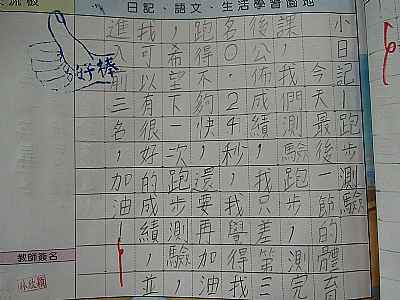 日記、語文、生活學習園地
小日記｜跑步測驗
今天最後一節的體育
課，我們測驗跑步，測完
後公佈成績，我只差第三
名0.24秒，我學得我
跑得不夠快，還要再加油
，希望下一次跑步測驗，
我可以有很好的成績，並
進入前三名，加油！
好棒
教師簽名